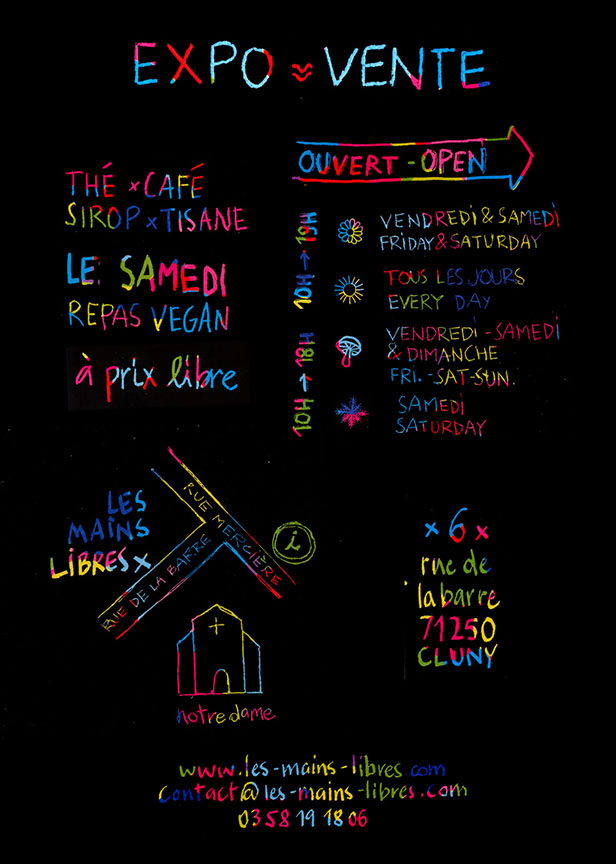 EXPO ≈ VENTE
THÉ x CAFÉ
SIROP x TISANE
LE SAMEDI
REPAS VEGAN
à prix libre
OUVERT - OPEN
10H → 19H
VENDREDI & SAMEDI
FRIDAY & SATURDAY
TOUS LES JOURS
EVERY DAY
10H → 18H
VENDREDI - SAMEDI
& DIMANCHE
FRI. - SAT - SUN.
SAMEDI
SATURDAY
LES
MAINS
LIBRES x
RUE MERCIÈRE
RUE DE LA BARRE
i
notre dame
x 6 x
rue de
la barre
71250
CLUNY
www.les-mains-libres.com
contact@les-mains-libres.com
03 58 19 18 06